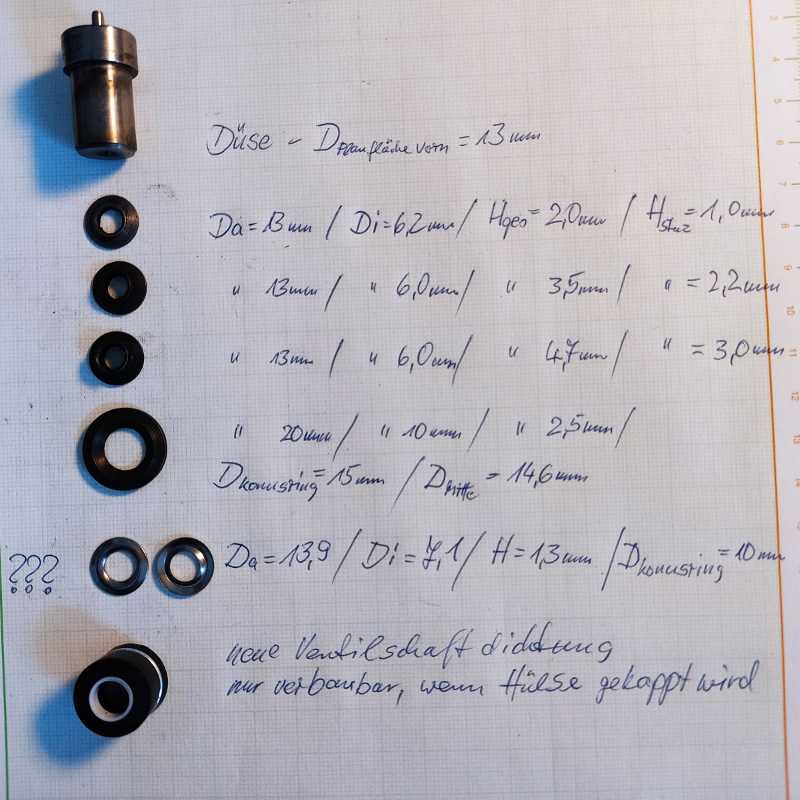 Düse - D Planfläche vorn = 13mm
Da = 13mm / Di = 6,2mm / Hges = 2,0mm / H = 1,0mm
" 13mm / " 6,0mm / " 3,5mm / " = 2,2mm
" 13mm / " 6,0mm / " 4,7mm / " = 3,0mm
" 20mm / " 10mm / " 2,5mm /
D konusring = 15mm / D Mitte = 14,6mm
??? Da = 13,9 / Di = 7,1 / H = 1,3mm / D konusring = 10mm
neue Ventilschaftdichtung
nur verbaubar, wenn Hülse gekappt wird